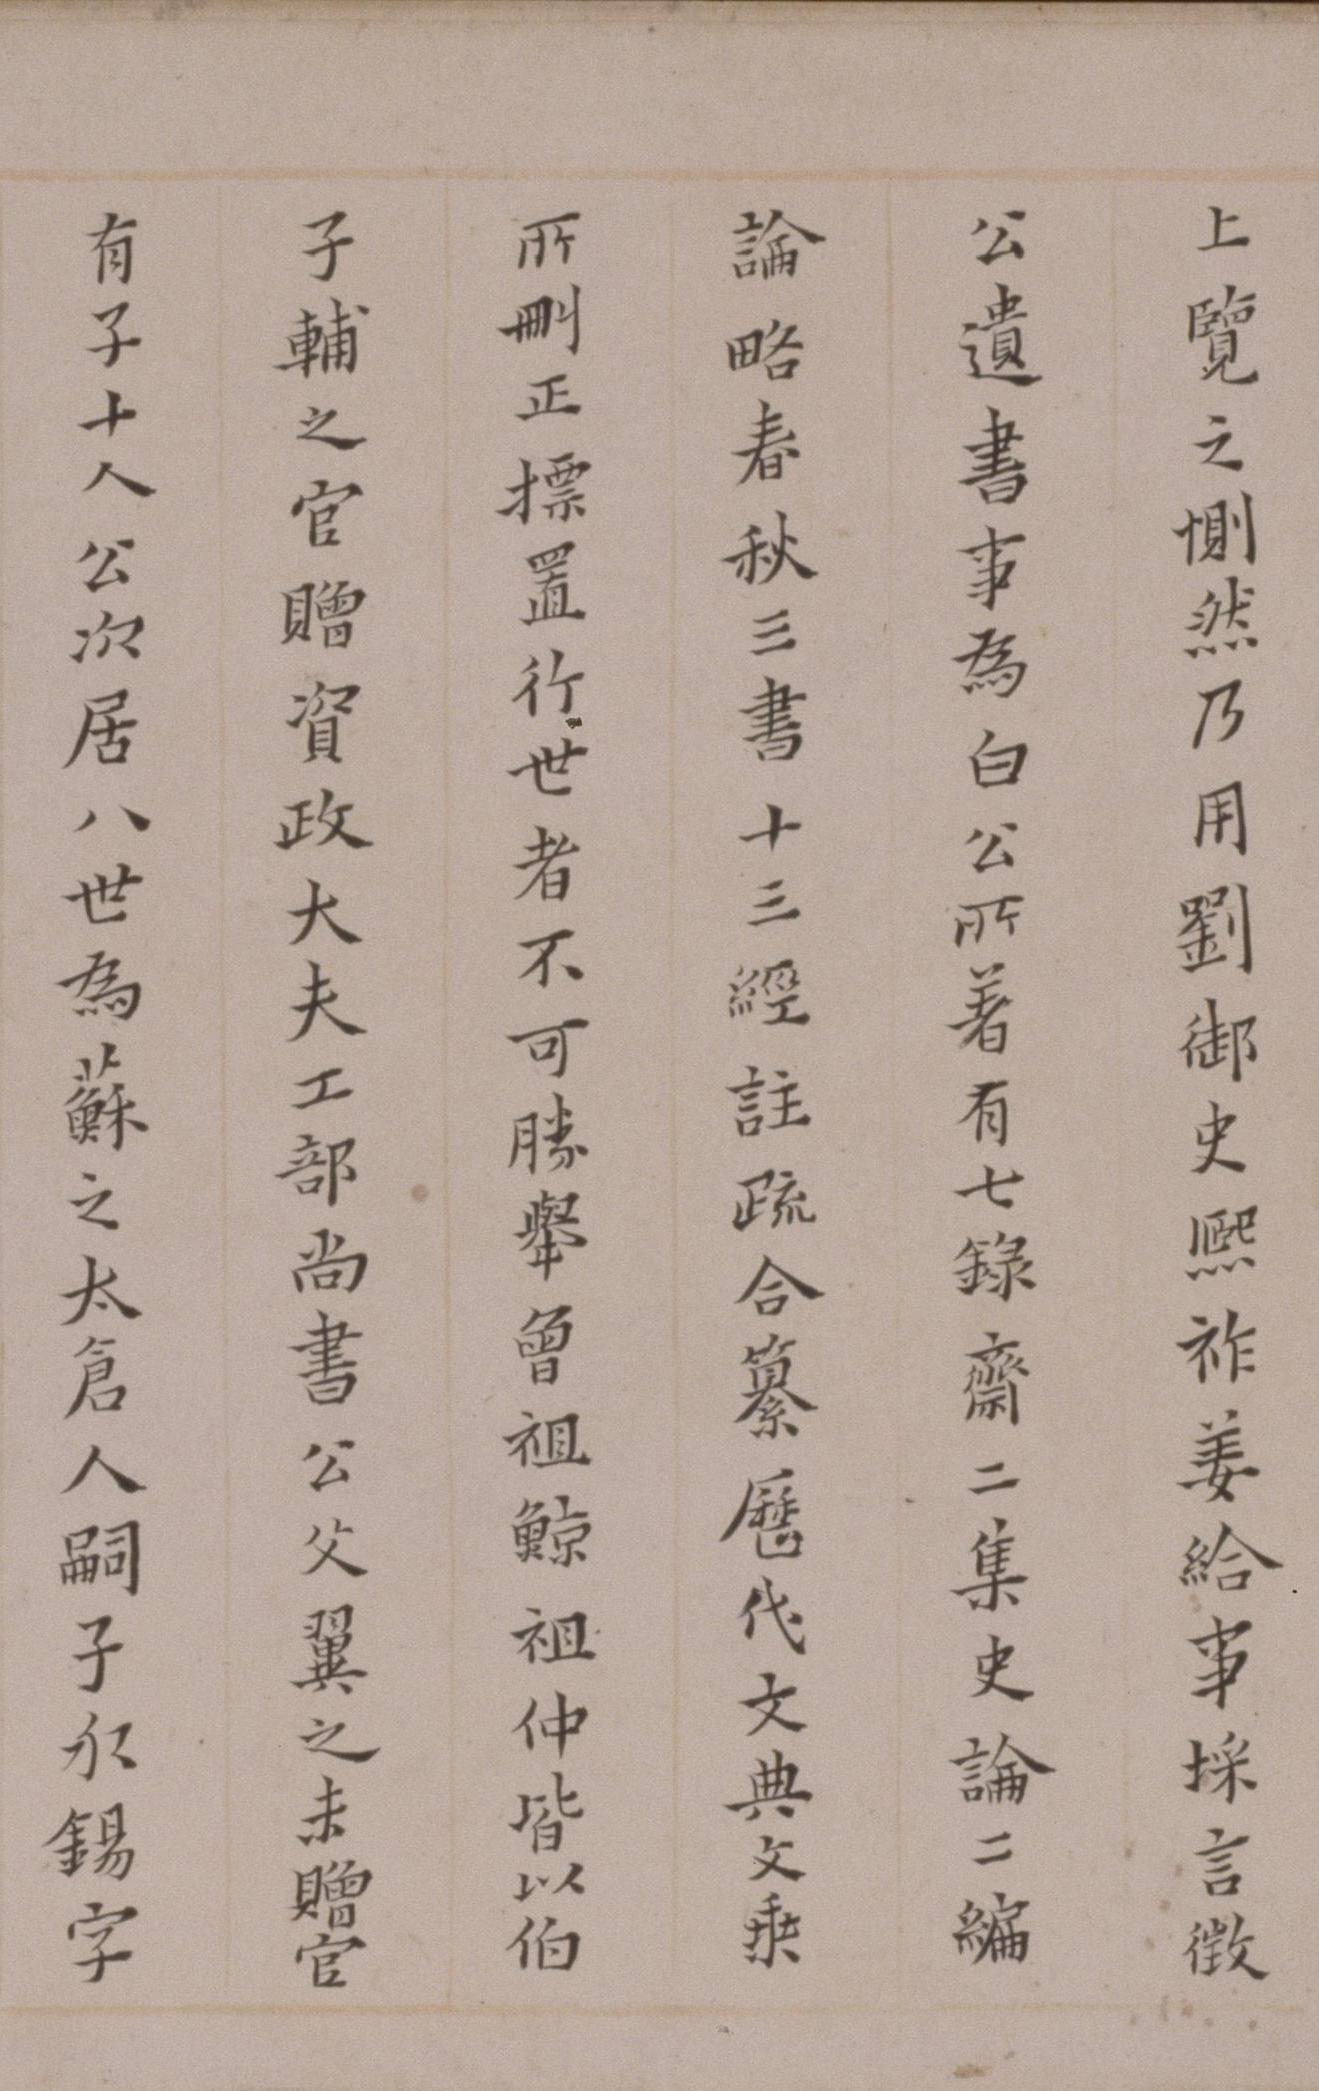 上覽之惻然乃用劉御史熙祚姜給事埰言徵
公遺書事為白公所著有七錄齋二集史論二編
論略春秋三書十三經註疏合纂歷代文典文乗
所刪正摽置行世者不可勝舉曾祖鯨祖仲皆以伯
子輔之官贈資政大夫工部尚書公父翼之未贈官
有子十人公次居八世為蘇之太倉人嗣子永錫字